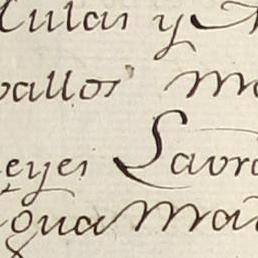 ulas y
vallos
eyes Lavra
gua